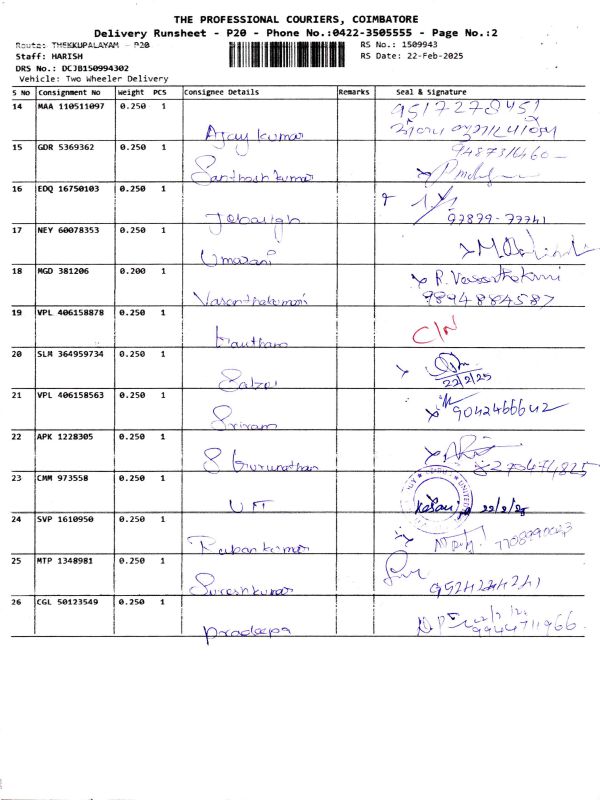 THE PROFESSIONAL COURIERS, COIMBATORE
Delivery Runsheet - P20 - Phone No.:0422-3505555 - Page No.:2
Route: THEKKUPALAYAM - P20
RS No.: 1509943
Staff: HARISH
RS Date: 22-Feb-2025
DRS No.: DCJB150994302
Vehicle: Two Wheeler Delivery
S No Consignment No Weight PCS Consignee Details Remarks Seal & Signature
14 MAA 110511097 0.250 1 9517278451
Ajay kumar
15 GDR 5369362 0.250 1
Santhosh kumar
16 EDQ 16750103 0.250 1
97879-77741
17 NEY 60078353 0.250 1
Umarani
18 MGD 381206 0.200 1 R. Vasanthakumari
Vasanthakumari 9894884587
19 VPL 406158878 0.250 1 C/N
Hautham
20 SLM 364959734 0.250 1
22/2/25
21 VPL 406158563 0.250 1 9042466642
Sriram
22 APK 1228305 0.250 1
S Gurunathan
23 CMM 973558 0.250 1
UFI 22/2/25
24 SVP 1610950 0.250 1
25 MTP 1348981 0.250 1
Sureshkumar 9524244241
26 CGL 50123549 0.250 1
Pradeepa 9944711966